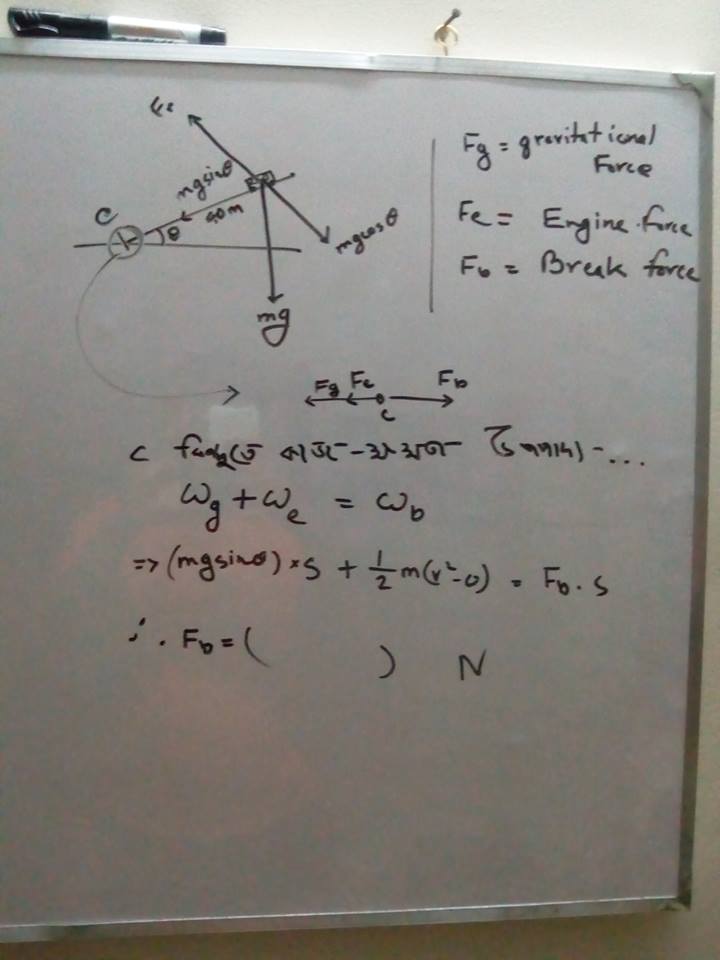 mgsinθ
C
40m
θ
mgcosθ
mg
Fg = gravitational
Force
Fe = Engine force
Fb = Break force
Fg Fe Fb
C
C বিন্দুতে কাজ-
Wg + We = Wb
=> (mgsinθ) × S + 1/2 m(v²-0) = Fb . S
∴ Fb = ( ) N